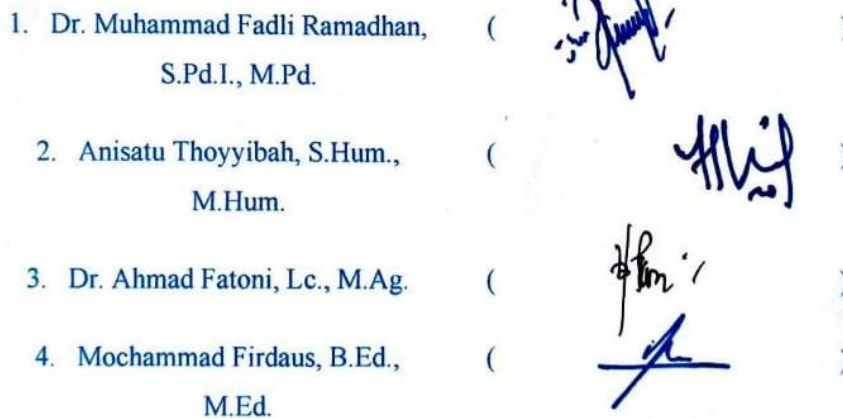 1. Dr. Muhammad Fadli Ramadhan, ( )
S.Pd.I., M.Pd.
2. Anisatu Thoyyibah, S.Hum., ( )
M.Hum.
3. Dr. Ahmad Fatoni, Lc., M.Ag. ( )
4. Mochammad Firdaus, B.Ed., ( )
M.Ed.